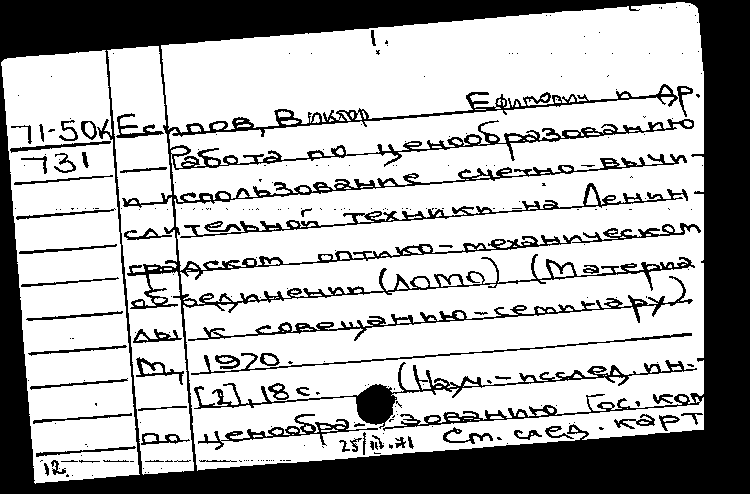 1.
71-50к Есипов, Виктор Ефимович и др.
731 Работа по ценообразованию
и использование счетно-вычи-
слительной техники на Ленин-
градском оптико-механическом
объединении (ЛОМО) (Материа-
лы к совещанию-семинару).
М., 1970.
[2], 18 с. (Науч.-исслед. ин-т
по ценообразованию Гос. ком
25/III-71 См. след. карт
12.